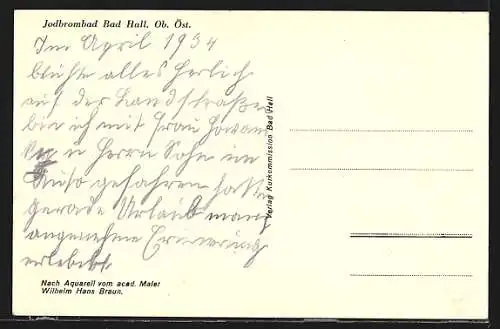 Jodbrombad Bad Hall, Ob. Öst.
Im April 1934
blühte alles herlich
auf der Landstraße
bin ich mit Frau
u Herrn Sohn im
Auto gefahren hatte
gerade Urlaub manch
angenehme Erinerung
erlebt
Verlag Kurkommission Bad Hall
Nach Aquarell vom acad. Maler
Wilhelm Hans Braun.